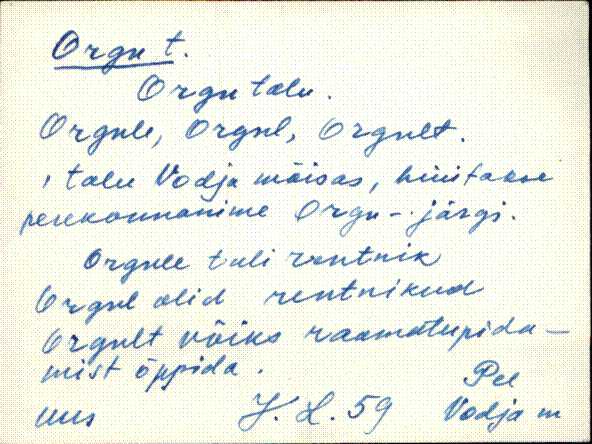 Orgu t.
Orgu talu.
Orgule, Orgul, Orgult.
, talu Vodja mõisas, hüütakse
perekonnanime Orgu - järgi.
Orgule tuli rentnik
Orgul olid rentnikud
Orgult võiks raamatupida-
mist õppida.
Pee
uus H. L. 59 Vodja m